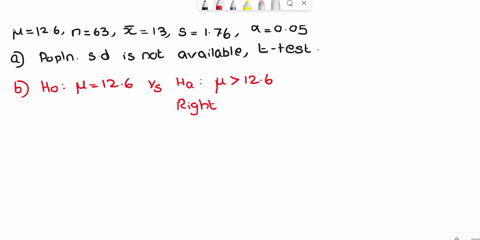 μ=12.6, n=63, x̄=13, s=1.76, a=0.05
a) Popln. s.d is not available, t-test.
b) Ho: μ=12.6 vs Ha: μ>12.6
Right